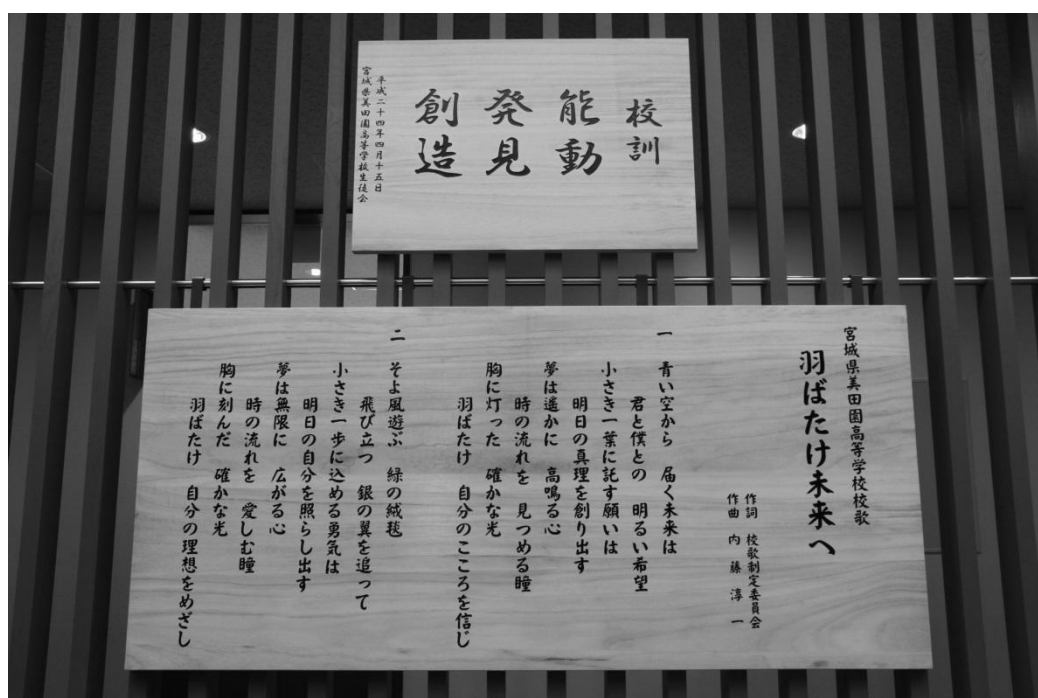 校訓
能動
発見
創造
平成二十四年四月十五日
宮城県美田園高等学校生徒会
宮城県美田園高等学校校歌
羽ばたけ未来へ
作詞 校歌制定委員会
作曲 内藤淳一
一 青い空から 届く未来は
君と僕との 明るい希望
小さき一葉に託す願いは
明日の真理を創り出す
夢は遥かに 高鳴る心
時の流れを 見つめる瞳
胸に灯った 確かな光
羽ばたけ 自分のこころを信じ
二 そよ風遊ぶ 緑の絨毯
飛び立つ 銀の翼を追って
小さき一歩に込める勇気は
明日の自分を照らし出す
夢は無限に 広がる心
時の流れを 愛しむ瞳
胸に刻んだ 確かな光
羽ばたけ 自分の理想をめざし